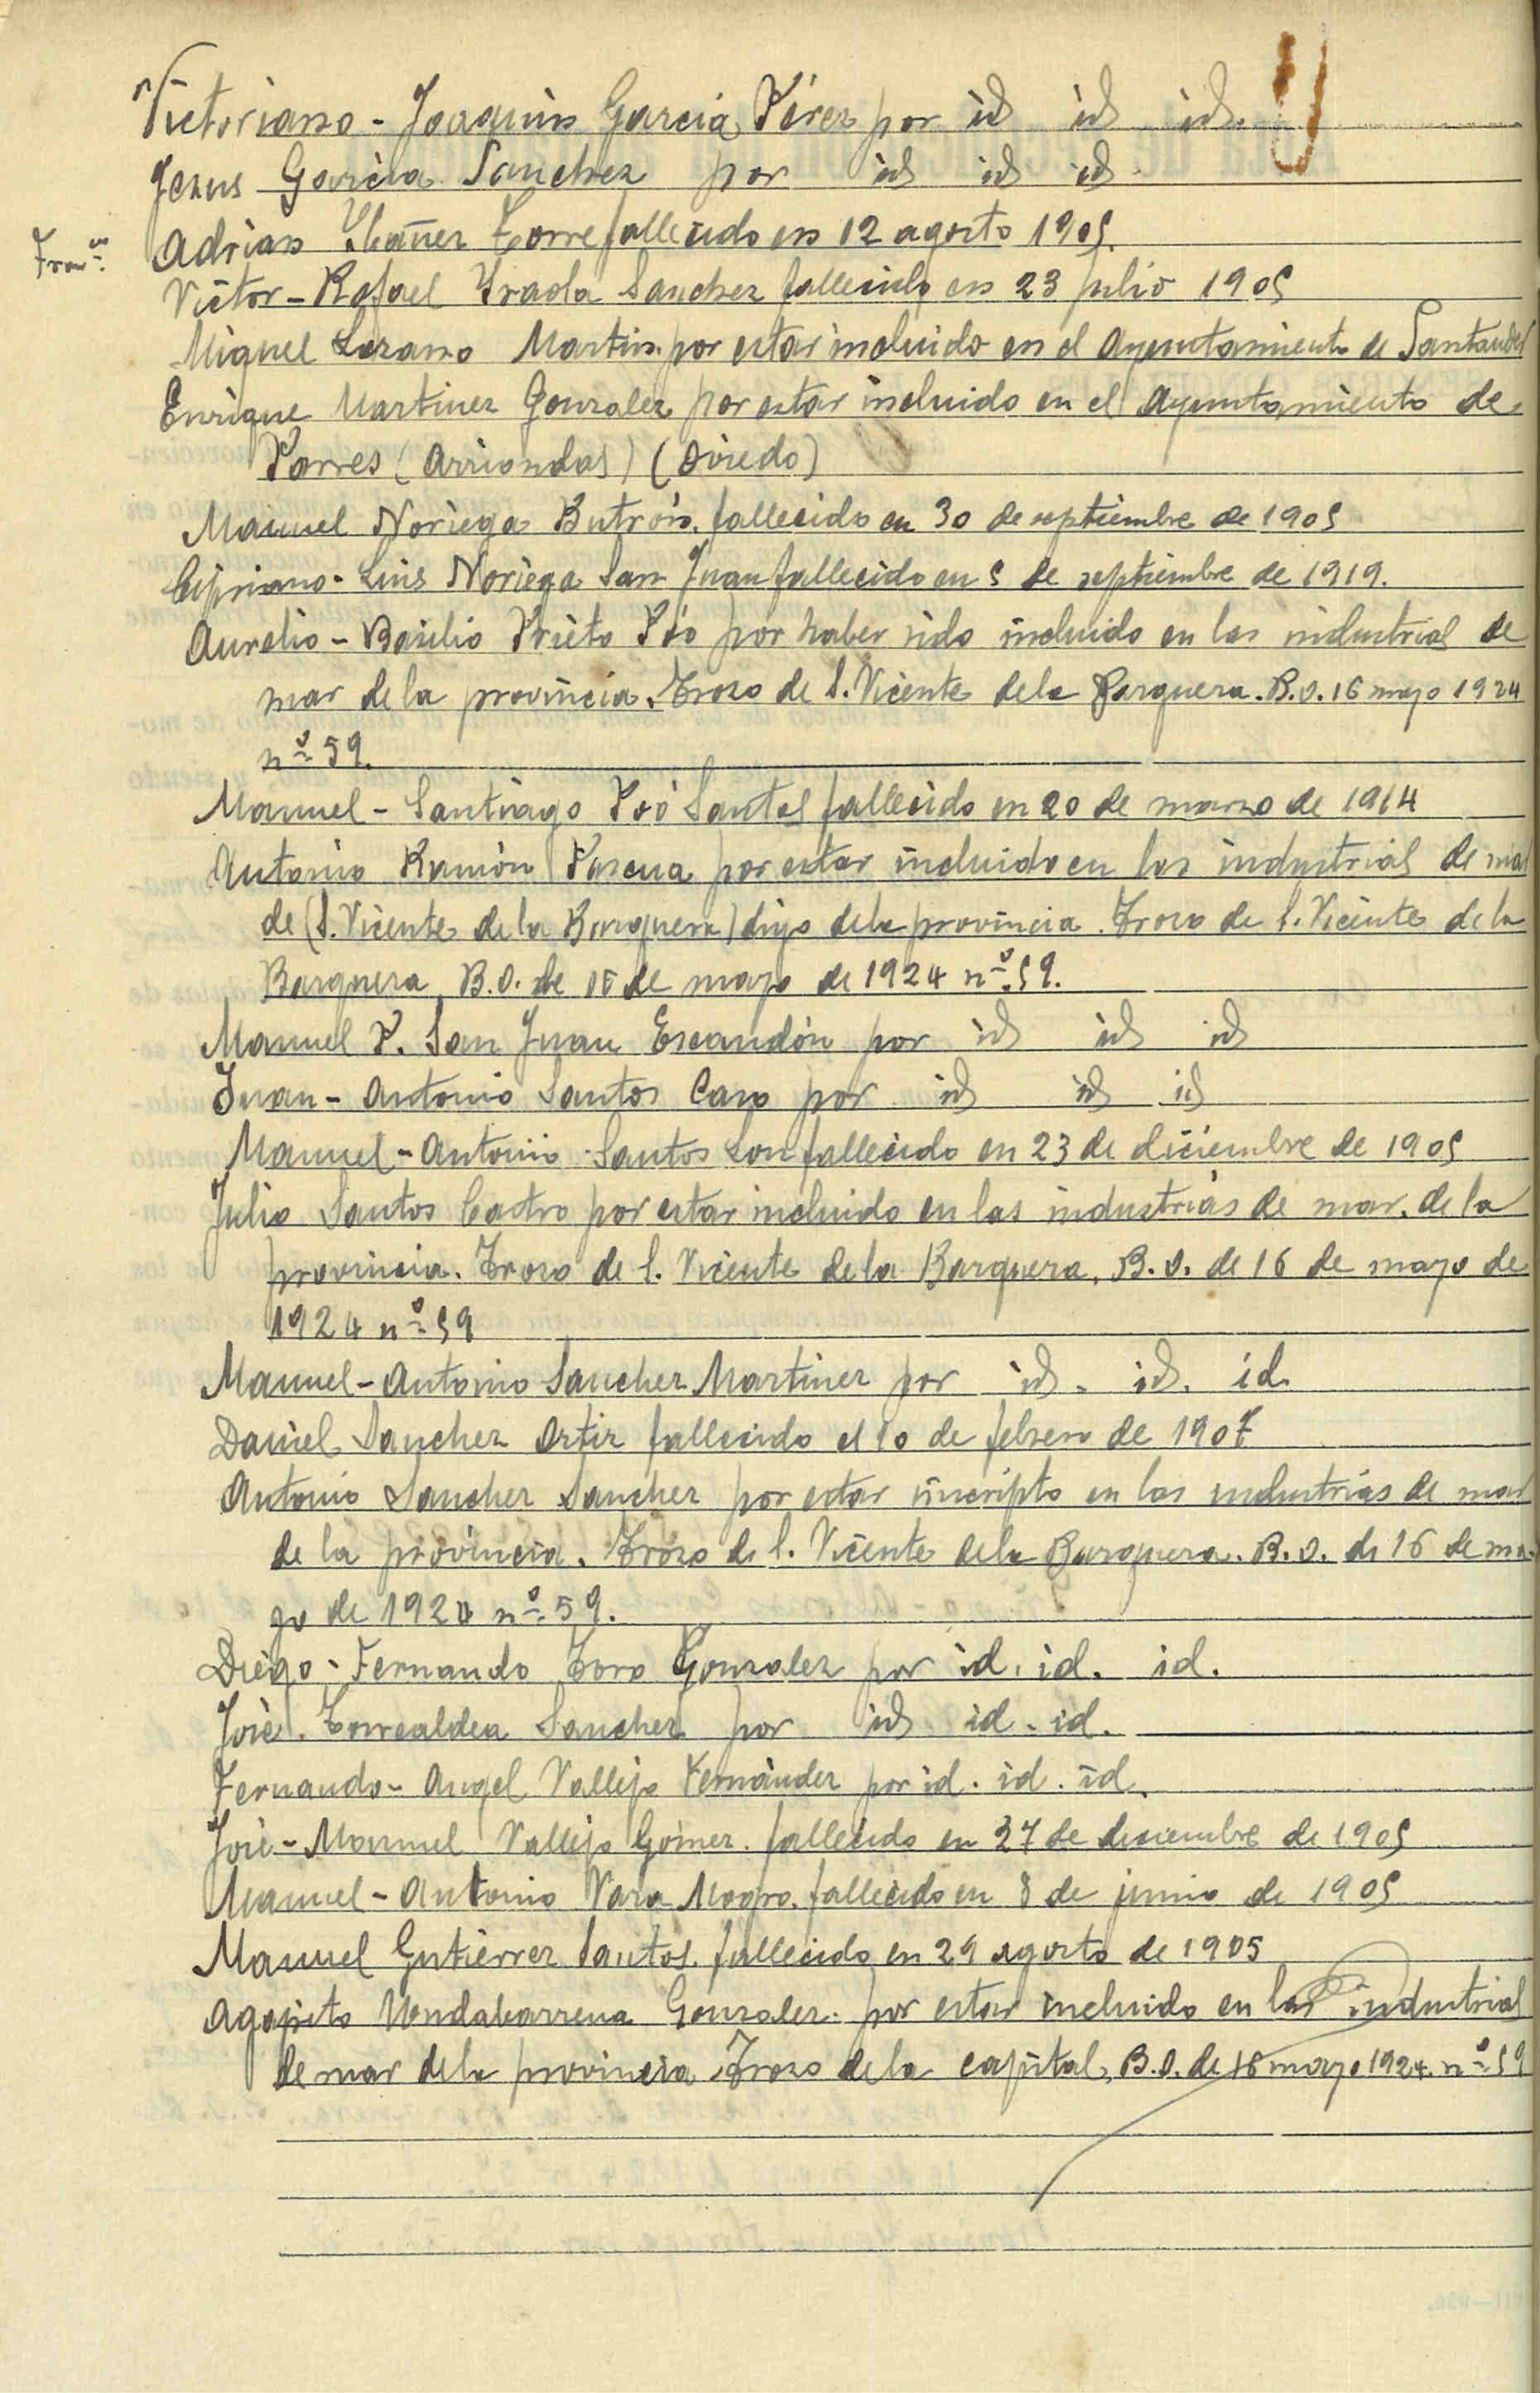 Victoriano - Joaquin Garcia Pérez por id id id.
Jesus Garcia Sanchez por id id id.
Adrian Ibañez Torre fallecido en 12 agosto 1905.
Victor - Rafael Iraola Sanchez fallecido en 23 julio 1905
Miguel Lozano Martin por estar incluido en el Ayuntamiento de Santander
Enrique Martinez Gonzalez por estar incluido en el Ayuntamiento de
Parres (Arriondas) (Oviedo)
Manuel Noriega Butrón. fallecido en 30 de septiembre de 1905
Cipriano - Luis Noriega San Juan fallecido en 5 de septiembre de 1919.
Aurelio - Basilio Prieto Póo por haber sido incluido en las industrias de
mar de la provincia. Trozo de S. Vicente de la Barquera. B.O. 16 mayo 1924
nº 59.
Manuel - Santiago Póo Santos fallecido en 20 de marzo de 1914
Antonio Ramón Pascua por estar incluido en las industrias de mar
de (S. Vicente de la Barquera) digo de la provincia. Trozo de S. Vicente de la
Barquera B.O. de 16 de mayo de 1924 nº 59.
Manuel P. San Juan Escandón por id id id
Juan - Antonio Santos Caso por id id id
Manuel - Antonio Santos Lon fallecido en 23 de diciembre de 1905
Julio Santos Castro por estar incluido en las industrias de mar. de la
provincia. Trozo de S. Vicente de la Barquera. B.O. de 16 de mayo de
1924 nº 59
Manuel - Antonio Sanchez Martinez por id. id. id.
Daniel Sanchez Ortiz fallecido el 10 de febrero de 1907
Antonio Sanchez Sanchez por estar inscripto en las industrias de mar
de la provincia. Trozo de S. Vicente de la Barquera. B.O. de 16 de ma-
yo de 1924 nº 59.
Diego - Fernando Toro Gonzalez por id. id. id.
José. Torrealdea Sanchez por id id. id.
Fernando - Angel Vallejo Fernández por id. id. id.
José - Manuel Vallejo Gómez. fallecido en 27 de diciembre de 1905
Manuel - Antonio Vara Magro. fallecido en 8 de junio de 1905
Manuel Gutiérrez Santos. fallecido en 29 agosto de 1905
Agapito Mondabarrena Gonzalez. por estar incluido en las industrias
de mar de la provincia Trozo de la capital. B.O. de 16 mayo 1924. nº 59